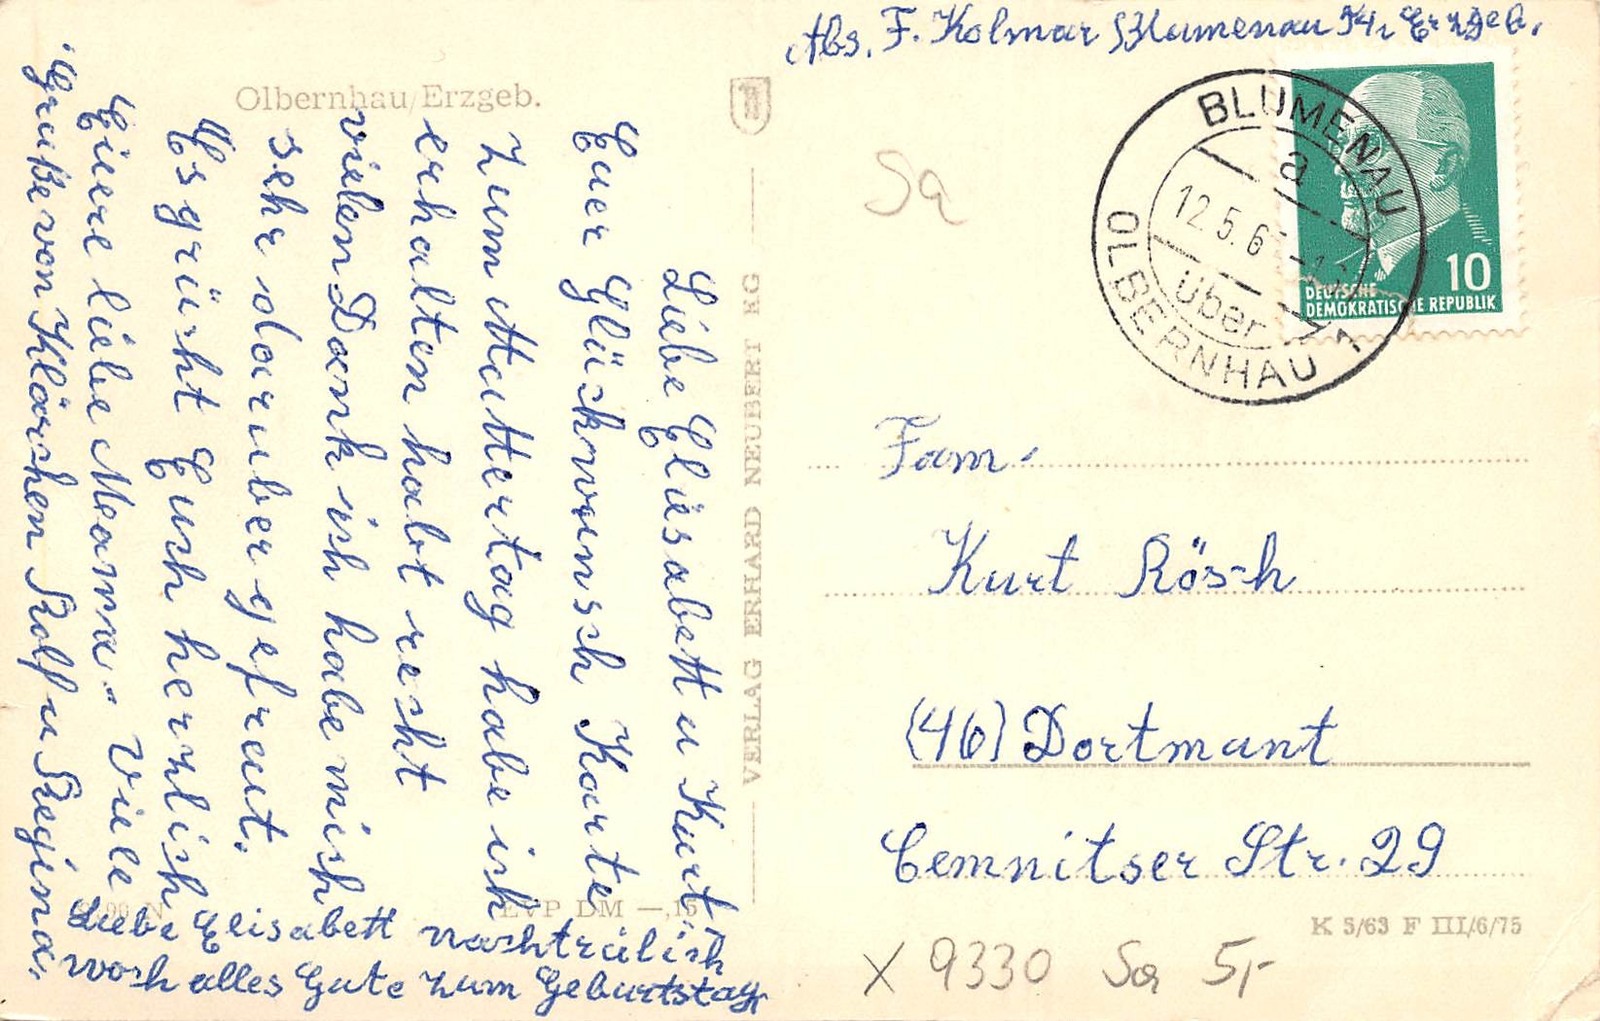 Abs. F. Kolmar Blumenau Kr. Erzgeb.
Olbernhau/Erzgeb.
Liebe Eliesabett u Kurt.
Euer Glückwunsch Karte
zum Muttertag habe ich
erhalten habt recht
vielen Dank ich habe mich
sehr darüber gefreut.
Es grüsht Euch herzlich
Eiere liebe Mama. Viele
Grüße von Klärchen Rolf u Regina.
Liebe Elisabett nachträlich
noch alles Gute zum Geburtstag
VERLAG ERHARD NEUBERT KG
EVP DM —,15
BLUMENAU
a
12.5.6
über
OLBERNHAU 1
10
DEUTSCHE
DEMOKRATISCHE REPUBLIK
Sa
Fam.
Kurt Rösch
(46) Dortmunt
Cemnitser Str. 29
K 5/63 F III/6/75
X 9330 Sa 5,-